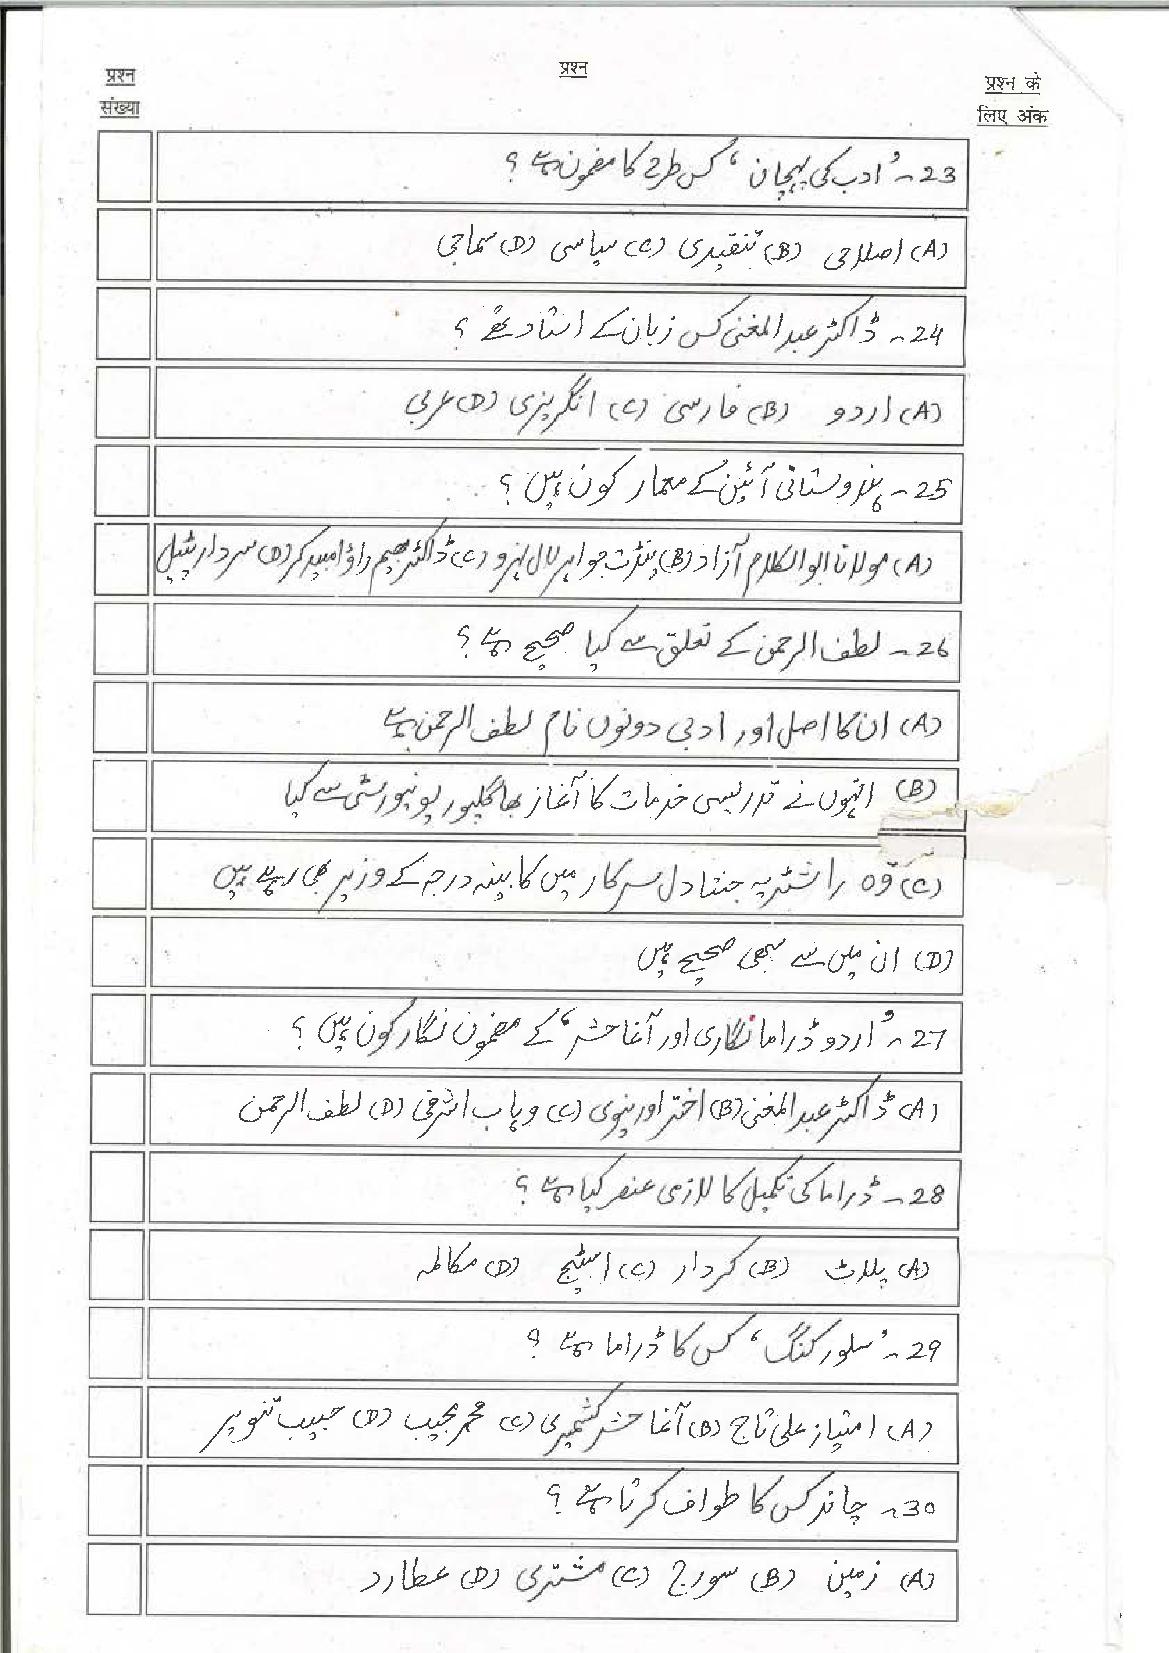 प्रश्न संख्या
प्रश्न
प्रश्न के लिए अंक
23۔ 'ادب کی پہچان' کس طرح کا مضمون ہے ؟
(A) اصلاحی (B) تنقیدی (C) سیاسی (D) سماجی
24۔ ڈاکٹر عبدالمغنی کس زبان کے استاد تھے ؟
(A) اردو (B) فارسی (C) انگریزی (D) عربی
25۔ ہندوستانی آئین کے معمار کون ہیں ؟
(A) مولانا ابوالکلام آزاد (B) پنڈت جواہر لال نہرو (C) ڈاکٹر بھیم راؤ امبیدکر (D) سردار پٹیل
26۔ لطف الرحمن کے تعلق سے کیا صحیح ہے ؟
(A) ان کا اصل اور ادبی دونوں نام لطف الرحمن ہے
(B) انہوں نے تدریسی خدمات کا آغاز بھاگلپور یونیورسٹی سے کیا
(C) وہ راشٹریہ جنتا دل سرکار میں کابینہ درجہ کے وزیر بھی رہے ہیں
(D) ان میں سے سبھی صحیح ہیں
27۔ 'اردو ڈراما نگاری اور آغا حشر' کے مضمون نگار کون ہیں ؟
(A) ڈاکٹر عبدالمغنی (B) اختر اورینوی (C) وہاب اشرفی (D) لطف الرحمن
28۔ ڈراما کی تکمیل کا لازمی عنصر کیا ہے ؟
(A) پلاٹ (B) کردار (C) اسٹیج (D) مکالمہ
29۔ 'سلور کنگ' کس کا ڈراما ہے ؟
(A) امتیاز علی تاج (B) آغا حشر کشمیری (C) محمد مجیب (D) حبیب تنویر
30۔ چاند کس کا طواف کرتا ہے ؟
(A) زمین (B) سورج (C) مشتری (D) عطارد